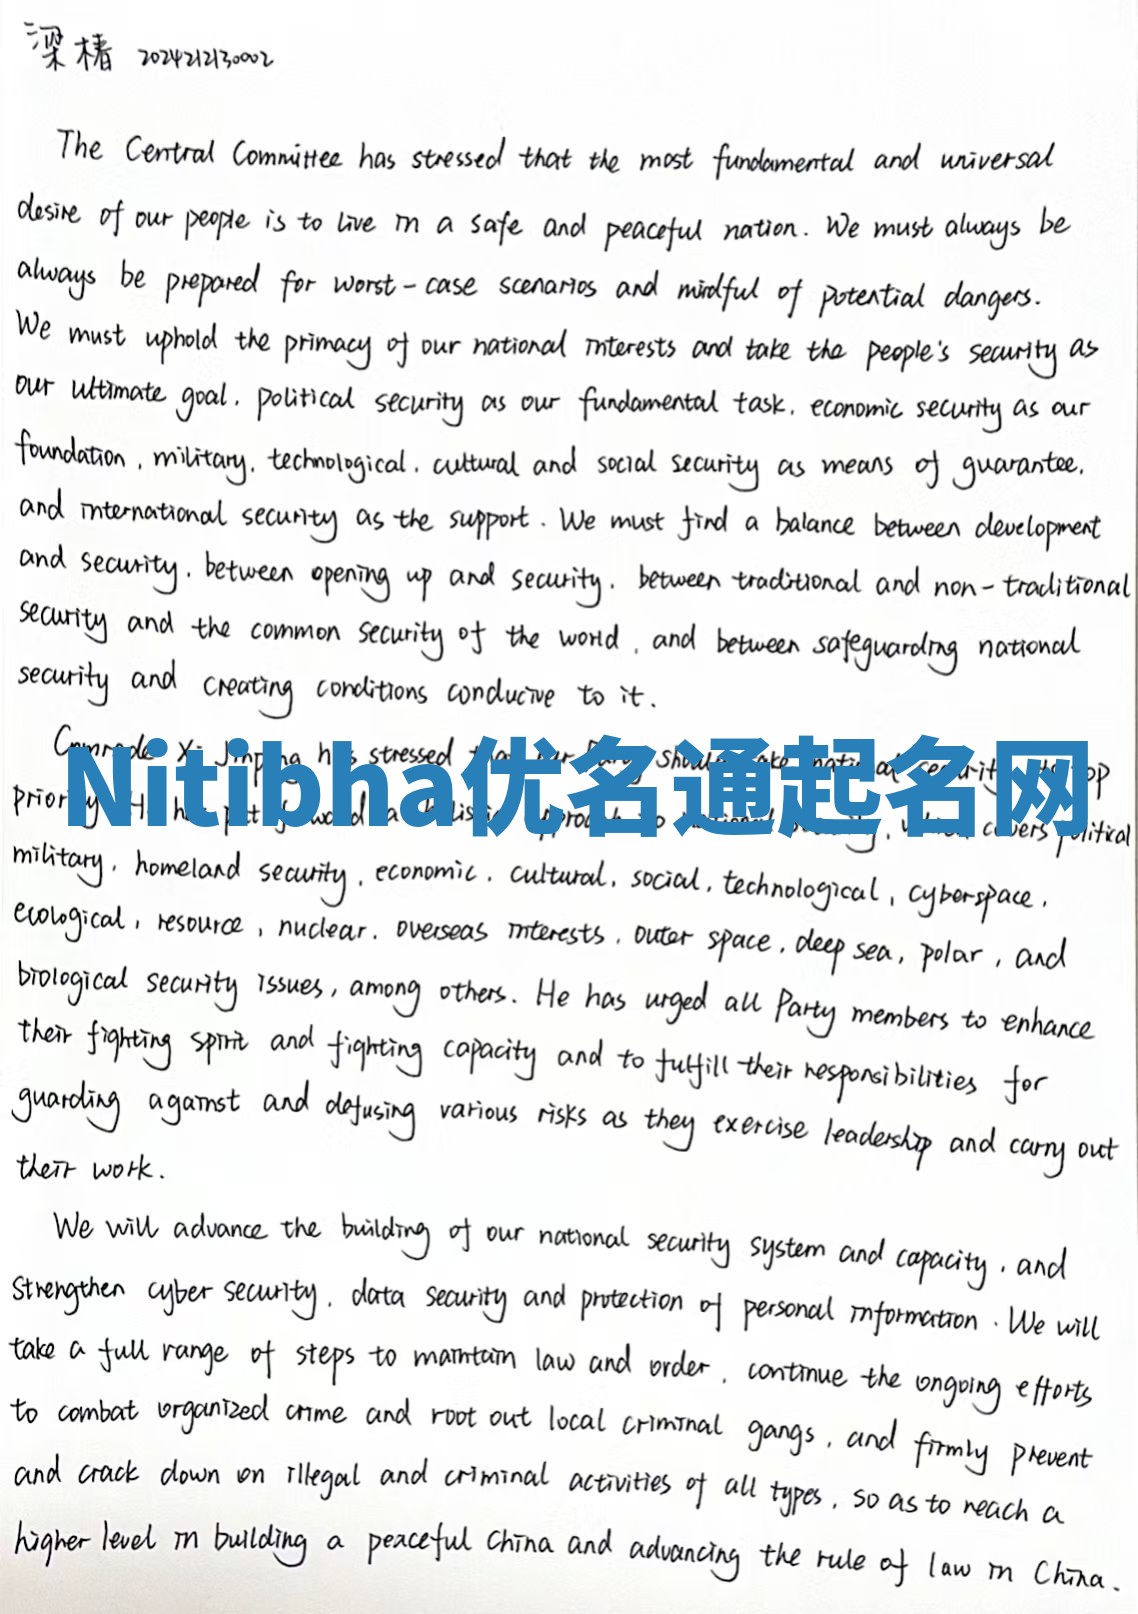 梁椿 2024212130002
The Central Committee has stressed that the most fundamental and universal
desire of our people is to live in a safe and peaceful nation. We must always be
always be prepared for worst-case scenarios and mindful of potential dangers.
We must uphold the primacy of our national interests and take the people's security as
our ultimate goal, political security as our fundamental task, economic security as our
foundation, military, technological, cultural and social security as means of guarantee,
and international security as the support. We must find a balance between development
and security, between opening up and security, between traditional and non-traditional
security and the common security of the world, and between safeguarding national
security and creating conditions conducive to it.
Comrade Xi Jinping has stressed that our Party should take national security its top
Nitibha优名通起名网
priority. He has put forward a holistic approach to national security, which covers political
military, homeland security, economic, cultural, social, technological, cyberspace,
ecological, resource, nuclear, overseas interests, outer space, deep sea, polar, and
biological security issues, among others. He has urged all Party members to enhance
their fighting spirit and fighting capacity and to fulfill their responsibilities for
guarding against and defusing various risks as they exercise leadership and carry out
their work.
We will advance the building of our national security system and capacity, and
strengthen cyber security, data security and protection of personal information. We will
take a full range of steps to maintain law and order, continue the ongoing efforts
to combat organized crime and root out local criminal gangs, and firmly prevent
and crack down on illegal and criminal activities of all types, so as to reach a
higher level in building a peaceful China and advancing the rule of law in China.